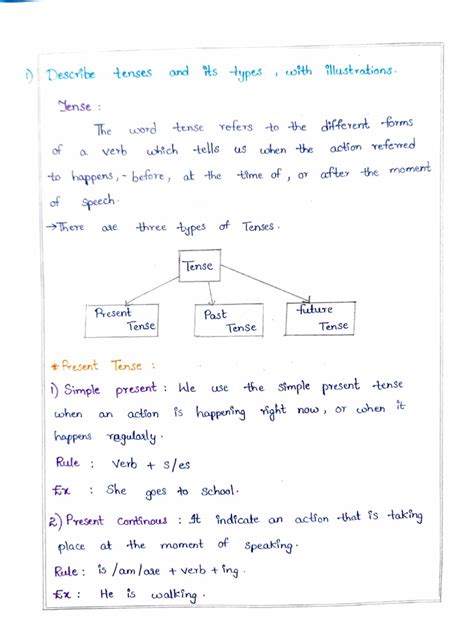 1) Describe tenses and its types, with illustrations.
Tense :
The word tense refers to the different forms
of a verb which tells us when the action referred
to happens, - before, at the time of, or after the moment
of speech.
→There are three types of Tenses.
Tense
Present Tense
Past Tense
future Tense
* Present Tense :
1) Simple present : We use the simple present tense
when an action is happening right now, or when it
happens regularly.
Rule : Verb + s/es
Ex : She goes to School.
2) Present Continous : It indicate an action that is taking
place at the moment of speaking.
Rule : is /am/are + verb + ing.
Ex : He is walking.